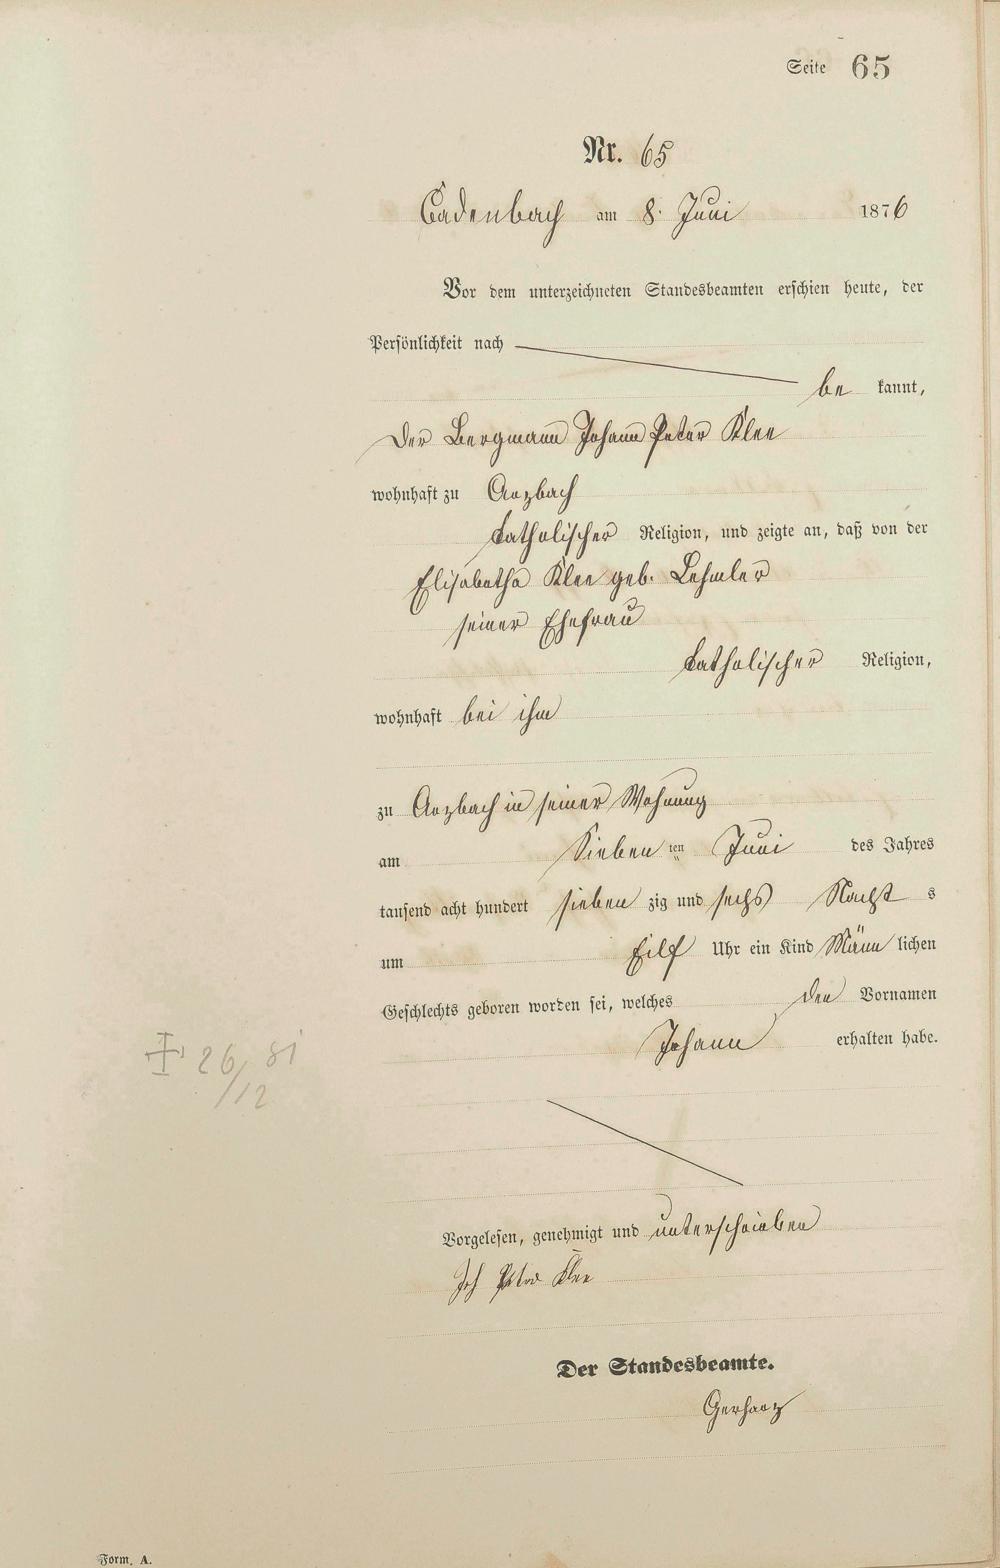 Seite 65
Nr. 65
Cadenbach am 8. Juni 1876
Vor dem unterzeichneten Standesbeamten erschien heute, der
Persönlichkeit nach
be kannt,
der Bergmann Johann Peter Klee
wohnhaft zu Arzbach
katholischer Religion, und zeigte an, daß von der
Elisabetha Klee geb. Lehmler
seiner Ehefrau
katholischer Religion,
wohnhaft bei ihm
zu Arzbach in seiner Wohnung
am Sieben ten Juni des Jahres
tausend acht hundert sieben zig und sechs Nacht s
um Eilf Uhr ein Kind Männ lichen
Geschlechts geboren worden sei, welches den Vornamen
Johann erhalten habe.
26/12 81
Vorgelesen, genehmigt und unterschrieben
Joh Peter Klee
Der Standesbeamte.
Gerharz
Form. A.